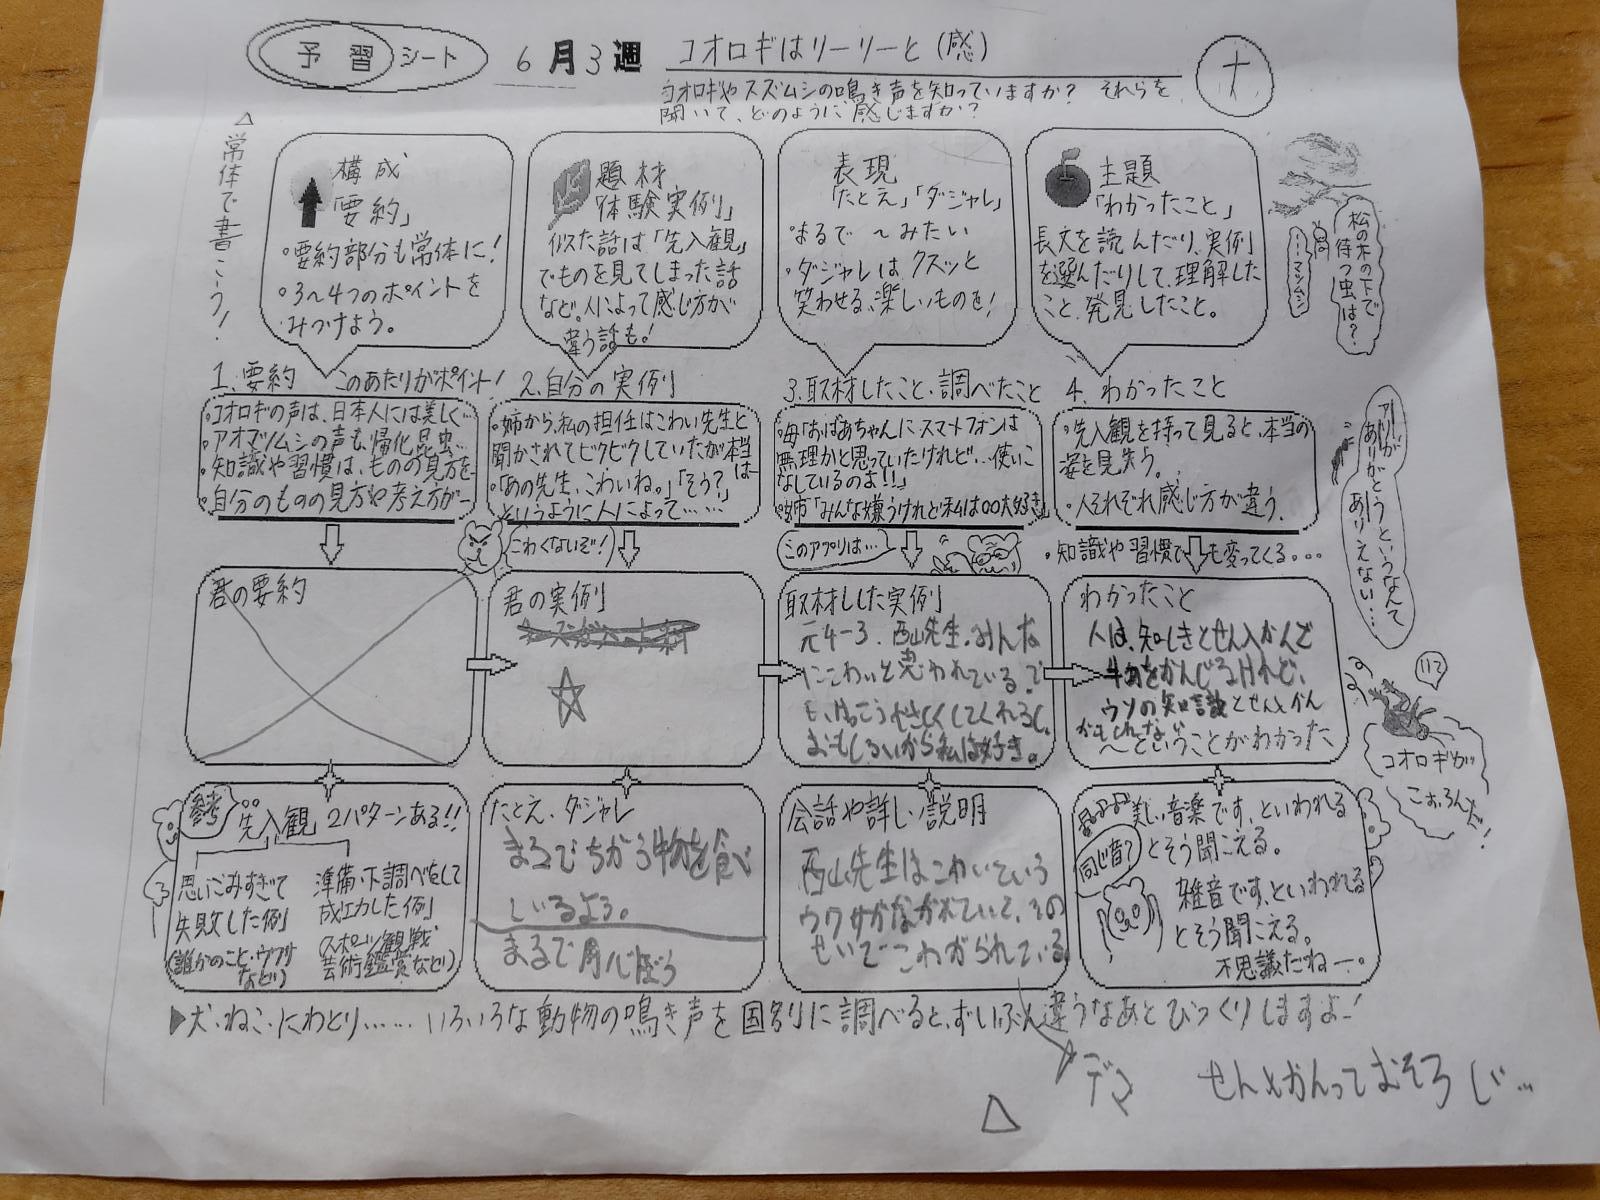 予習シート 6月3週 コオロギはリーリーと(感)
コオロギやスズムシの鳴き声を知っていますか? それらを
聞いて、どのように感じますか?
△常体で書こう!
構成
「要約」
・要約部分も常体に!
・3〜4つのポイントを
みつけよう。
題材
「体験実例」
似た話は「先入観」
でものを見てしまった話
など。人によって感じ方が
違う話も!
表現
「たとえ」「ダジャレ」
・まるで〜みたい
・ダジャレはクスッと
笑わせる、楽しいものを!
主題
「わかったこと」
長文を読んだり、実例
を選んだりして、理解した
こと、発見したこと。
松の木の下で
待つ虫は?
……マツムシ
1.要約 このあたりがポイント!
・コオロギの声は、日本人には美しく
・アオマツムシの声も帰化昆虫…
・知識や習慣は、ものの見方を
・自分のものの見方や考え方が―
2.自分の実例
・姉から、私の担任はこわい先生と
聞かされてビクビクしていたが本当は―
・「あの先生、こわいね。」「そう?」
というように人によって……
3.取材したこと・調べたこと
・母「おばあちゃんにスマートフォンは
無理かと思っていたけれど…使いこ
なしているのよ!!」
・姉「みんな嫌うけれど私は○○大好き」
4.わかったこと
・先入観を持って見ると、本当の
姿を見失う。
・人それぞれ感じ方が違う。
・知識や習慣でも変ってくる…
アリが
ありがとうというなんて
ありえない…
こわくないぞ!
このアプリは…
君の要約
君の実例
☆
取材した実例
元4-3、西山先生。みんな
にこわいと思われている。で
も、けっこうやさしくしてくれるし、
おもしろいから私は好き。
わかったこと
人は、知しきとせん入かんで
物をかんじるけれど、
ウソの知識とせん入かん
かもしれない
〜ということがわかった
コオロギが
こおろんだ!
参考 先入観 2パターンある!!
思いこみすぎて
失敗した例
(誰かのこと・ウワサ
など)
準備・下調べをして
成功した例
(スポーツ観戦
芸術鑑賞など)
たとえ、ダジャレ
まるでちがう物を食べ
ているよう。
まるで用心ぼう
会話や詳しい説明
西山先生はこわいという
ウワサがながれていて、その
せいでこわがられている
美しい音楽です、といわれる
とそう聞こえる。
同じ音?
雑音です、といわれる
とそう聞こえる。
不思議だねー。
▶犬・ねこ・にわとり……いろいろな動物の鳴き声を国別に調べると、ずいぶん違うなあとびっくりしますよ!
デマ
せん入かんっておそろしい…
△